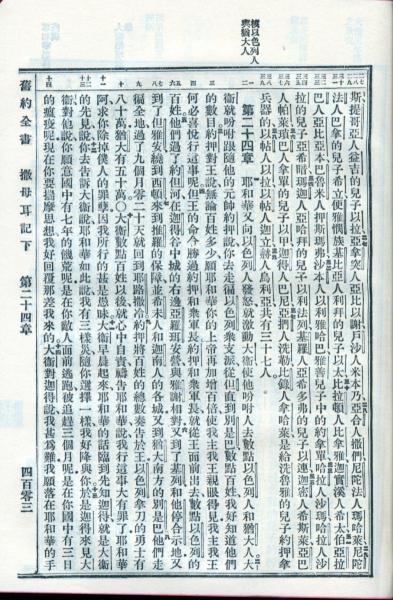 數以色列人與猶大人
斯提拜亞人益吉的兒子以拉亞拿突人亞比以謝戶沙人米本乃亞合人撒們尼陀法人瑪哈萊尼陀
法人巴拿的兒子希立便雅憫族基比亞人利拜的兒子以太比拉頓人比拿雅迦實溪人希太伯亞拉
巴人亞比亞本巴魯米人押斯瑪弗沙本人以利雅哈巴雅善兒子中的約拿單哈拉人沙瑪哈拉人沙
拉的兒子亞希暗瑪迦人亞哈拜的兒子以利法列基羅人亞希多弗的兒子以連迦密人希斯萊亞巴
人帕萊瑣巴人拿單的兒子以甲迦得人巴尼亞捫人洗勒比錄人拿哈萊是給洗魯雅的兒子約押拿
兵器的以帖人以拉以帖人迦立赫人烏利亞共有三十七人
第二十四章 耶和華又向以色列人發怒就激動大衛使他吩咐人去數點以色列人和猶大人大
衛就吩咐跟隨他的元帥約押說你去走徧以色列衆支派從但直到別是巴數點百姓我好知道他們
的數目約押對王說無論百姓多少願耶和華你的上帝再加增百倍使我主我王親眼得見我主我王
何必喜悅行這事呢但王的命令勝過約押和衆軍長約押和衆軍長就從王面前出去數點以色列的
百姓他們過了約但河在迦得谷中城的右邊亞羅珥安營與雅謝相對又到了基列和他停合示地又
到了但雅安繞到西頓來到推羅的保障並希未人和迦南人的各城又到猶大南方的別是巴他們走
徧全地過了九個月零二十天就回到耶路撒冷約押將百姓的總數奏告於王以色列拿刀的勇士有
八十萬猶大有五十萬〇大衛數點百姓以後就心中自責禱告耶和華說我行這事大有罪了耶和華
阿求你除掉僕人的罪孽因我所行的甚是愚昧大衛早晨起來耶和華的話臨到先知迦得就是大衛
的先見說你去告訴大衛說耶和華如此說我有三樣災隨你選擇一樣我好降與你於是迦得來見大
衛對他說你願意國中有七年的饑荒呢是在你敵人面前逃跑被追趕三個月呢是在你國中有三日
的瘟疫呢現在你要揣摩思想我好回覆那差我來的大衛對迦得說我甚爲難我願落在耶和華的手
舊約全書 撒母耳記下 第二十四章 四百零三